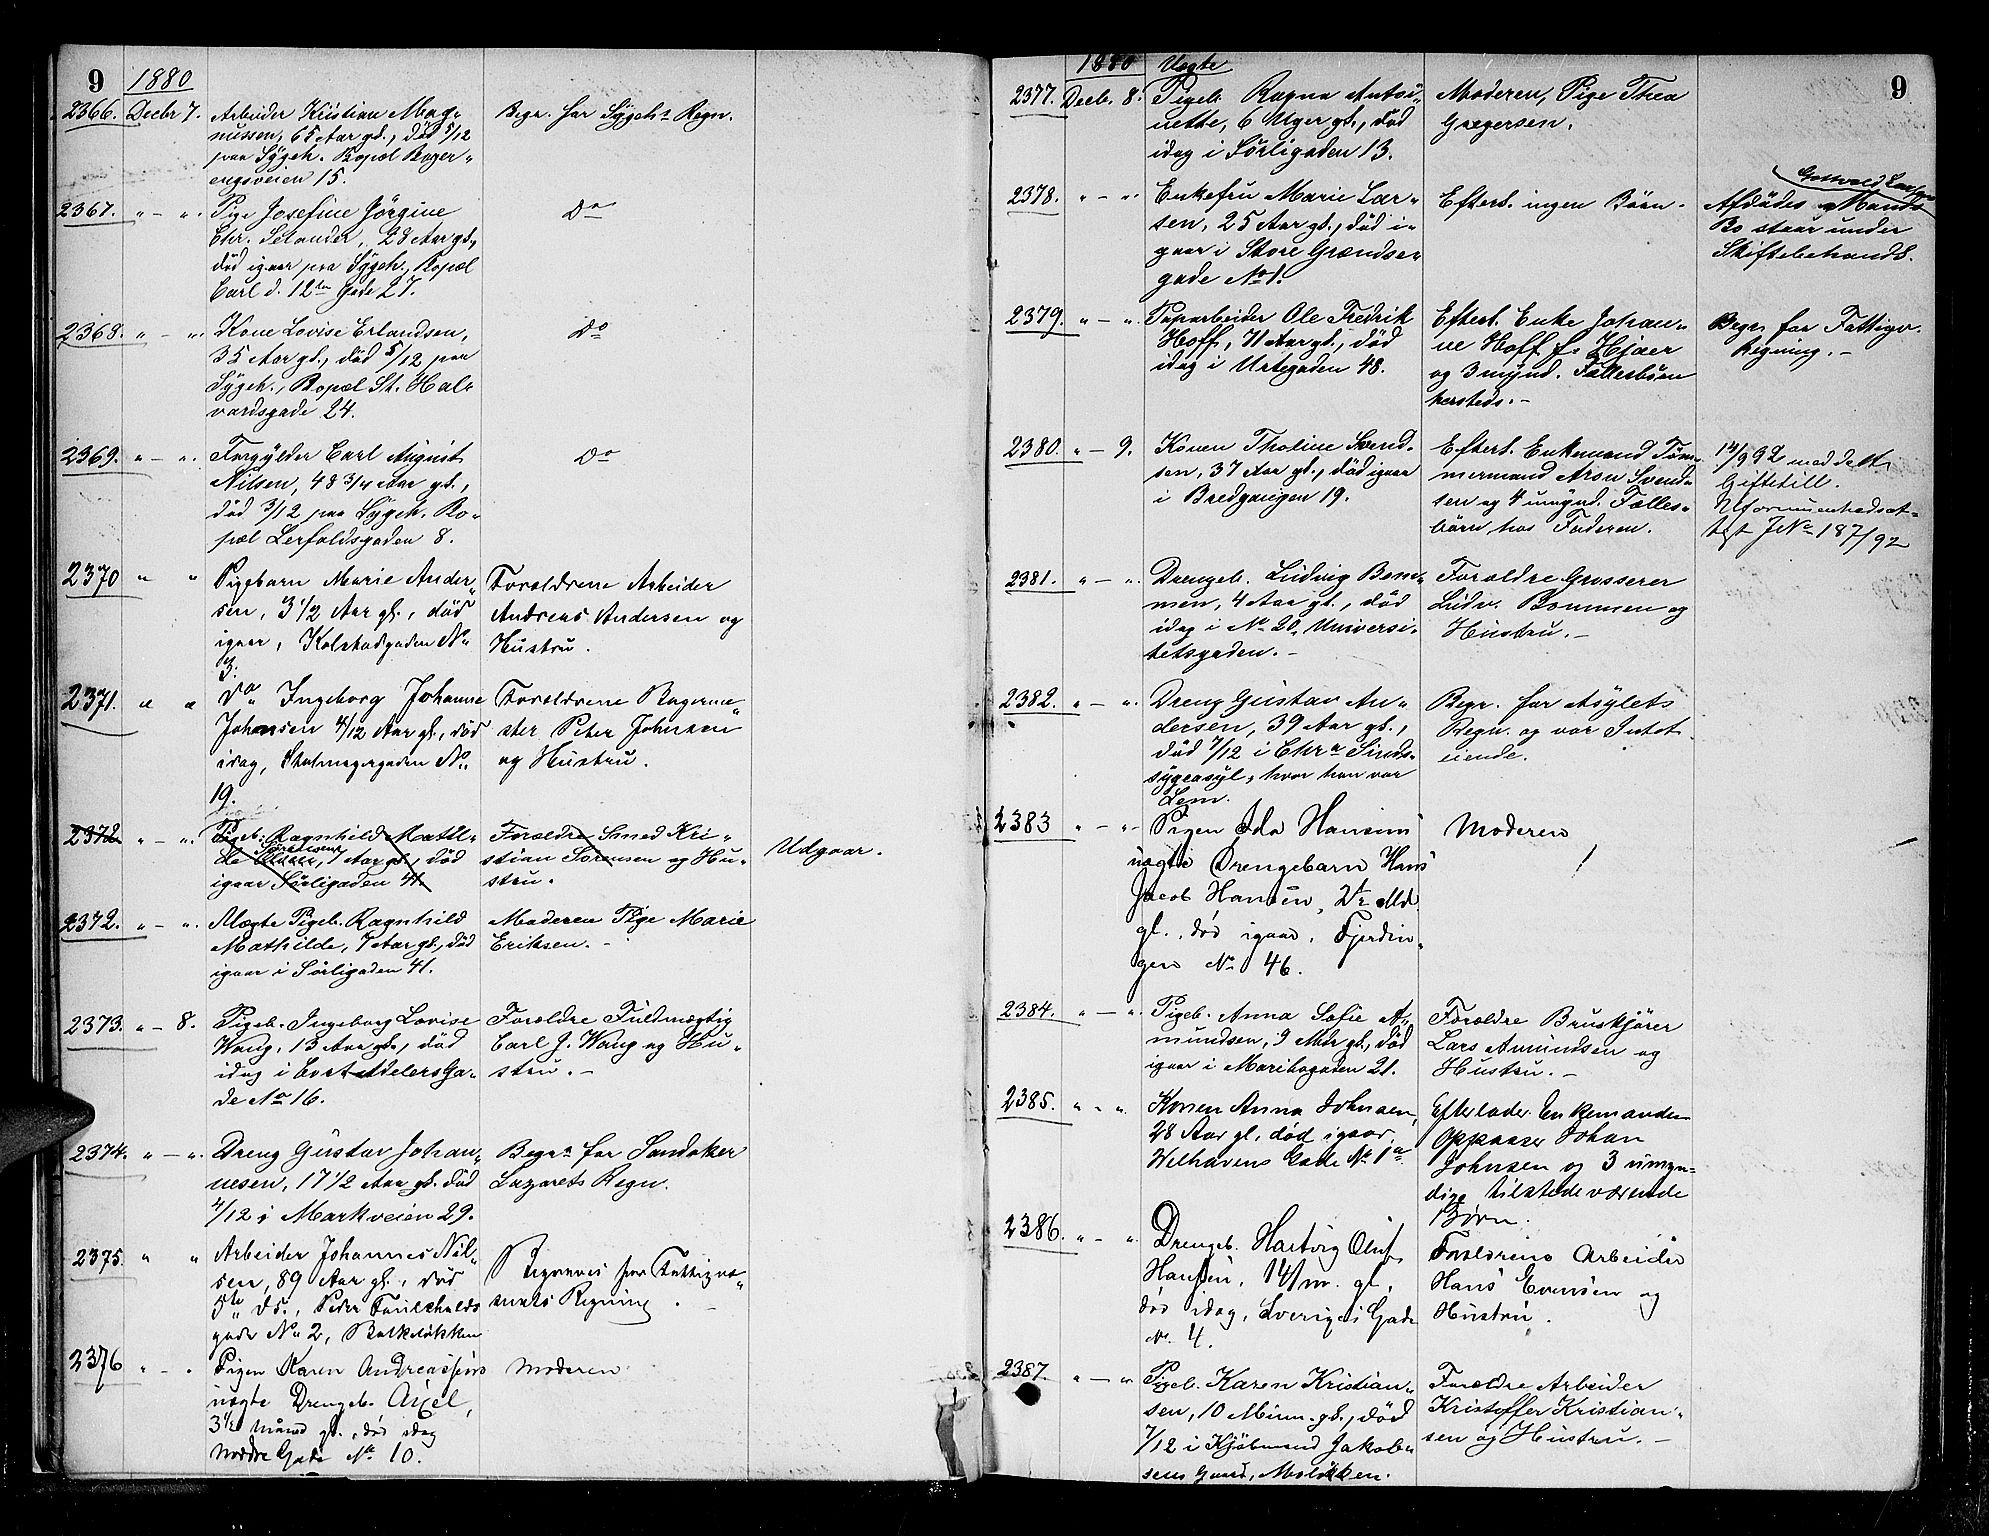 9
1880
2366. Decbr 7. Arbeider Kristian Mag-
nussen, 65 Aar gl., død 5/12
paa Sygeh. Bopæl Bøger-
engsveien 15.
Begr. for Sygehs Regn.
2367. " - ". Pige Josefine Jörgine
Chr. Selander, 28 Aar gl.,
död igaar paa Sygeh., Bopæl
Carl d. 12te Gade 27.
Do
2368. " - ". Kone Lovise Erlandsen,
35 Aar gl., död 5/12 paa
Sygeh., Bopæl St. Hal-
vardsgade 24.
Do
2369. " - ". Forgylder Carl August
Nilsen, 48 3/4 Aar gl.,
död 3/12 paa Sygeh. Bo-
pæl Lerfaldsgaden 8.
Do
2370 " " Pigebarn Marie Ander-
sen, 3 1/2 Aar gl., død
igaar, Kolstadgaden No
3.
Forældrene Arbeider
Andreas Andersen og
Hustru.
2371. " " Do Ingeborg Johanne
Johansen 4/12 Aar gl., død
idag, Stolmagergaden No
19.
Forældrene Bagerme-
ster Peter Johnsen
og Hustru.
2372 " - ". Pigeb. Ragnhild Mathil-
de Sørensen, 7 Aar gl., död
igaar Sörligaden 41.
Forældre Smed Kri-
stian Sörensen og Hu-
stru.
Udgaar.
2372. " - ". Uægte Pigeb. Ragnhild
Mathilde, 7 Aar gl., död
igaar i Sörligaden 41.
Moderen Pige Marie
Eriksen. -
2373. " - 8. Pigeb. Ingeborg Lovise
Wang, 13 Aar gl., död
idag i Cort Adelers Ga-
de No 16.
Forældre Fuldmægtig
Carl J. Wang og Hu-
stru. -
2374. " - ". Dreng Gustav Johan-
nesen, 17 1/2 Aar gl. död
4/12 i Markveien 29.
Begrs for Sandaker
Lazarets Regn.
2375. " " Arbeider Johannes Nil-
sen, 89 Aar gl., død
5te ds., Peder Faulchalds
gade No 2, Balkeløkken
Begraves for Fattigvæ-
senets Regning. -
2376 " - " Pigen Karen Andreassens
uægte Drengeb. Axel,
3 1/2 Maaned gl., død idag
Nordre Gade No 10.
Moderen
9
1880 Uægte
2377. Decb. 8. Pigeb. Ragna Antoi-
nette, 6 Uger gl., död
idag i Sörligaden 13.
Moderen, Pige Thea
Gregersen.
2378. " - " Enkefru Marie Lar-
sen, 25 Aar gl., död i-
gaar i Store Grændse-
gade No 1.
Efterl. ingen Börn.
Gottvald Larsen
Afdödes Mands
Bo staar under
Skiftebehandl.
2379. " - ". Paparbeider Ole Fredrik
Hoff, 71 Aar gl., död
idag i Urtegaden 48.
Efterl. Enke Johan-
ne Hoff f. Hjaer
og 3 mynd. Fællesbörn
hersteds. -
Begr. for Fattigv.
Regning. -
2380. " - 9. Konen Tholine Svend-
sen, 37 Aar gl., död igaar
i Bredgangen 19.
Efterl. Enkemand Töm-
mermand Aron Svend-
sen og 4 umynd. Fælles-
börn hos Faderen.
14/9 92 meddelt
Giftetill.
Uformuenhedsat-
test JNo 187/92
2381. " - ". Drengeb. Ludvig Bom-
men, 4 Aar gl., död
idag i No 20, Universi-
tetsgaden. -
Forældre Grosserer
Ludv. Bommen og
Hustru. -
2382. " - ". Dreng Gustav An-
dersen, 39 Aar gl.,
död 7/12 i Chra Sinds-
sygeasyl, hvor han var
Lem.
Begr. for Asylets
Regn. og var Intet
eiende.
2383 " - " Pigen Ida Hansens
uægte Drengebarn Hans
Jacob Hansen, 2 1/2 Md.
gl., død igaar, Fjerdin-
gen No 46.
Moderen
2384. " - ". Pigeb. Anna Sofie A-
mundsen, 9 Mdr gl., död
igaar i Maribogaden 21.
Forældre Bruskjörer
Lars Amundsen og
Hustru. -
2385. " - ". Konen Anna Johnsen,
28 Aar gl., død igaar,
Welhavens Gade No 1a.
Efterlader Enkemanden
Oppasser Johan
Johnsen og 3 umyn-
dige tilstedeværende
Børn.
2386. " - " Drengeb. Hartvig Oluf
Hansen, 14 m. gl.,
død idag, Sverigesgade
No 4.
Forældrene Arbeider
Hans Evensen og
Hustru.
2387. " - " Pigeb. Karen Kristian-
sen, 10 Minn. gl., död
7/12 i Kjöbmand Jakob-
sens Gaard, Moløkken.
Forældre Arbeider
Kristoffer Kristian-
sen og Hustru. -